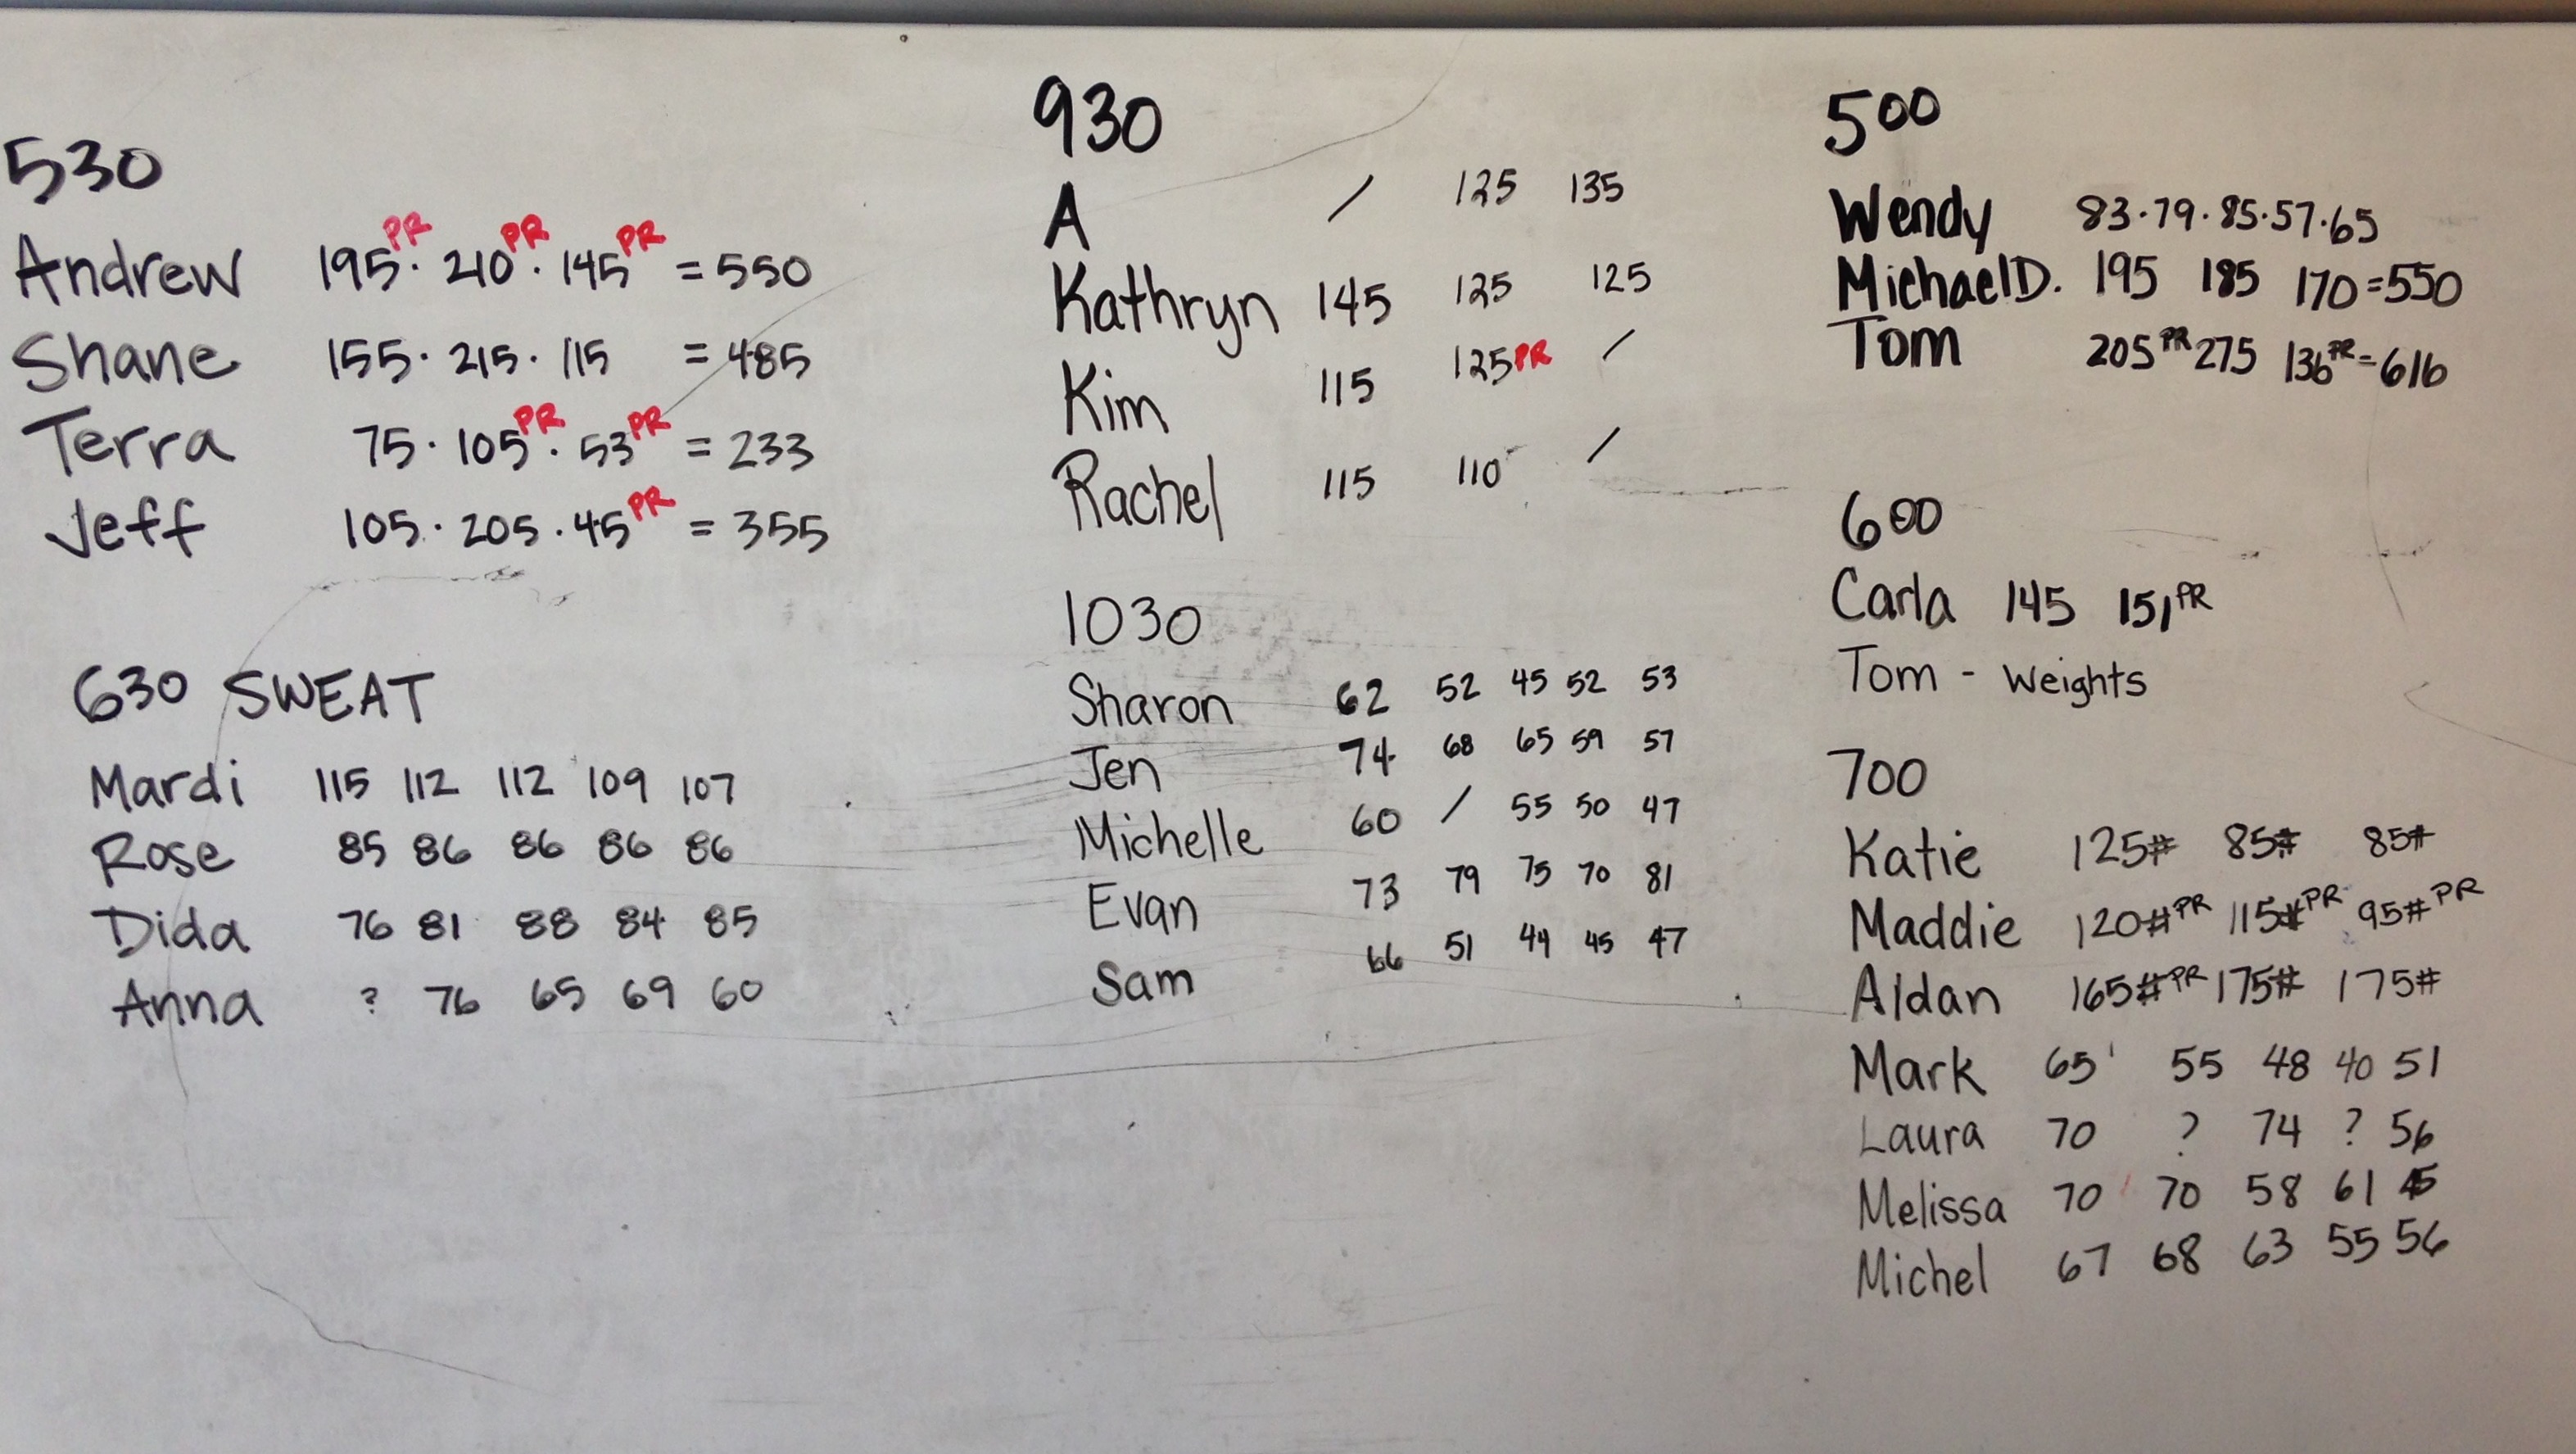 530
Andrew 195PR · 210PR · 145PR = 550
Shane 155 · 215 · 115 = 485
Terra 75 · 105PR · 53PR = 233
Jeff 105 · 205 · 45PR = 355
630 SWEAT
Mardi 115 112 112 109 107
Rose 85 86 86 86 86
Dida 76 81 88 84 85
Anna ? 76 65 69 60
930
A / 125 135
Kathryn 145 125 125
Kim 115 125PR /
Rachel 115 110 /
1030
Sharon 62 52 45 52 53
Jen 74 68 65 59 57
Michelle 60 / 55 50 47
Evan 73 79 75 70 81
Sam 66 51 44 45 47
500
Wendy 83·79·85·57·65
Michael D. 195 185 170=550
Tom 205PR 275 136PR=616
600
Carla 145 151PR
Tom - Weights
700
Katie 125# 85# 85#
Maddie 120#PR 115#PR 95#PR
Aidan 165#PR 175# 175#
Mark 65 55 48 40 51
Laura 70 ? 74 ? 56
Melissa 70 70 58 61
Michel 67 68 63 55 56